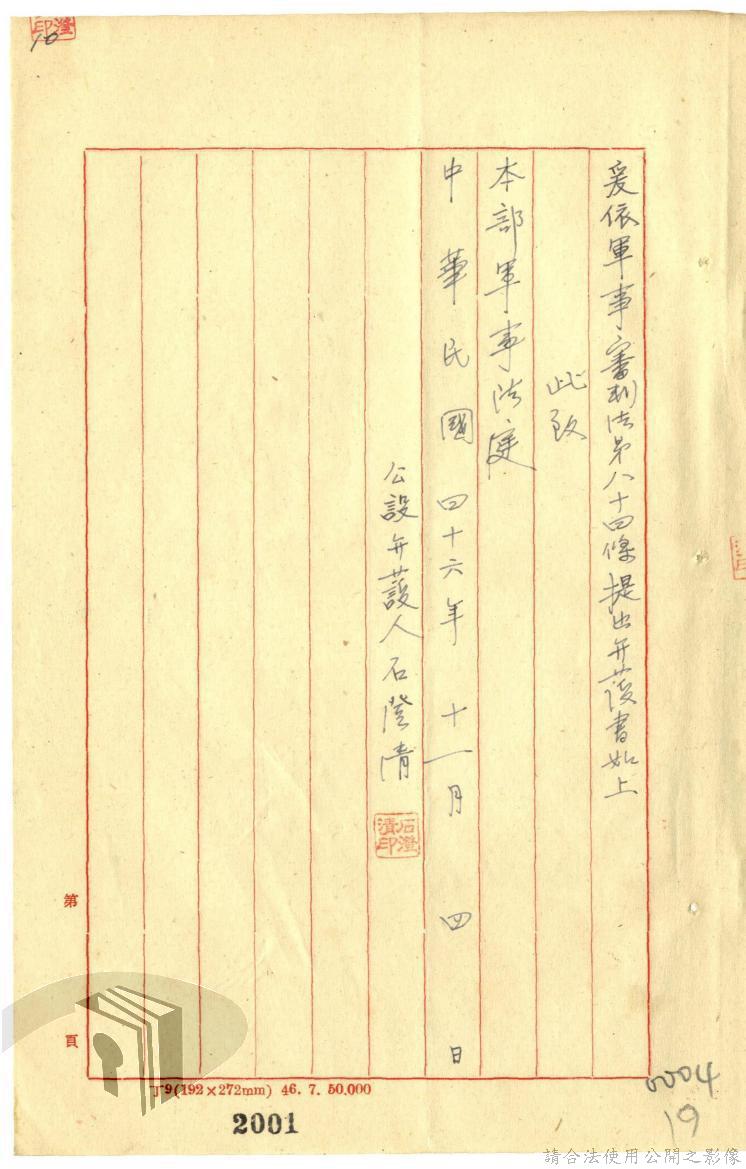 爰依軍事審判法第八十四條提出弁護書如上
此致
本部軍事法庭
中華民國四十六年十一月四日
公設弁護人石澄清
石澄清印
第 頁
丁9(192×272mm) 46. 7. 50,000
2001
0004
19
10
請合法使用公開之影像